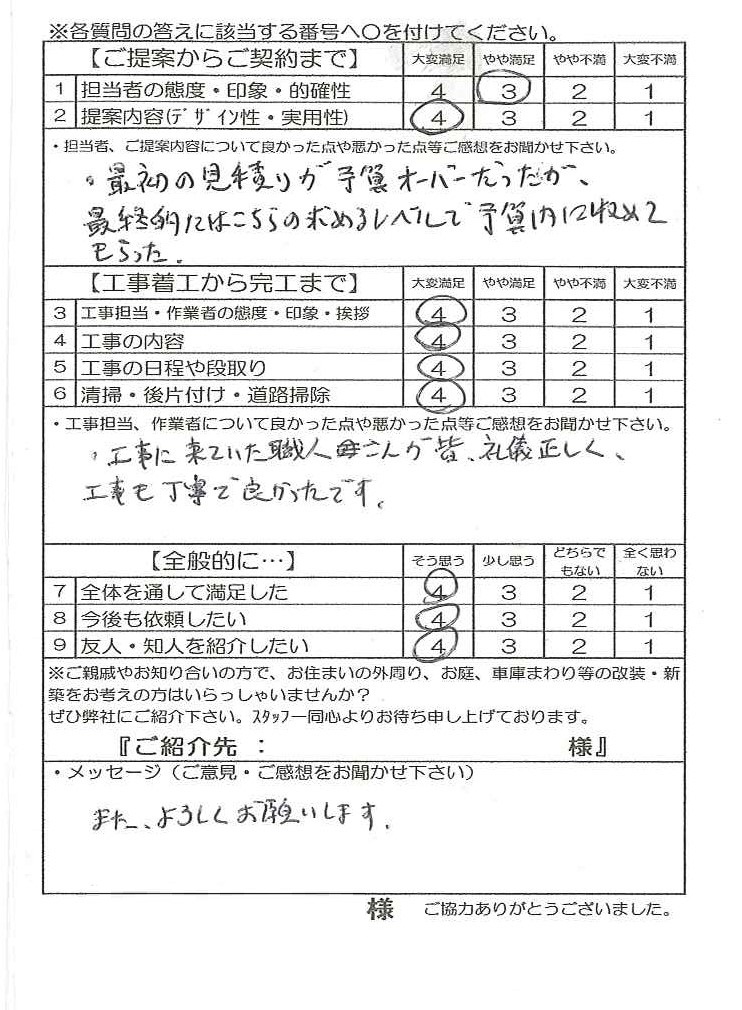 ※各質問の答えに該当する番号へ〇を付けてください。
【ご提案からご契約まで】 大変満足 やや満足 やや不満 大変不満
1 担当者の態度・印象・的確性 4 3 2 1
2 提案内容(ﾃﾞｻﾞｲﾝ性・実用性) 4 3 2 1
・担当者、ご提案内容について良かった点や悪かった点等ご感想をお聞かせ下さい。
。最初の見積りが予算オーバーだったが、
最終的にはこちらの求めるレベルで予算内に収めて
もらった。
【工事着工から完工まで】 大変満足 やや満足 やや不満 大変不満
3 工事担当・作業者の態度・印象・挨拶 4 3 2 1
4 工事の内容 4 3 2 1
5 工事の日程や段取り 4 3 2 1
6 清掃・後片付け・道路掃除 4 3 2 1
・工事担当、作業者について良かった点や悪かった点等ご感想をお聞かせ下さい。
・工事に来ていた職人 さんが皆、礼儀正しく、
工事も丁寧で良かったです。
【全般的に…】 そう思う 少し思う どちらでもない 全く思わない
7 全体を通して満足した 4 3 2 1
8 今後も依頼したい 4 3 2 1
9 友人・知人を紹介したい 4 3 2 1
※ご親戚やお知り合いの方で、お住まいの外周り、お庭、車庫まわり等の改装・新
築をお考えの方はいらっしゃいませんか？
ぜひ弊社にご紹介下さい。ｽﾀｯﾌ一同心よりお待ち申し上げております。
『ご紹介先： 様』
・メッセージ（ご意見・ご感想をお聞かせ下さい）
また、よろしくお願いします。
様 ご協力ありがとうございました。